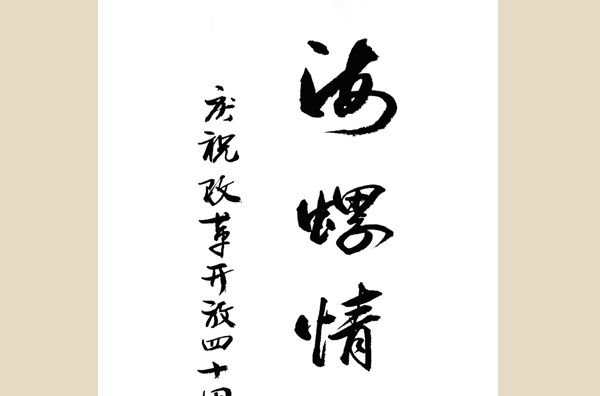 海螺情
庆祝改革开放四十周